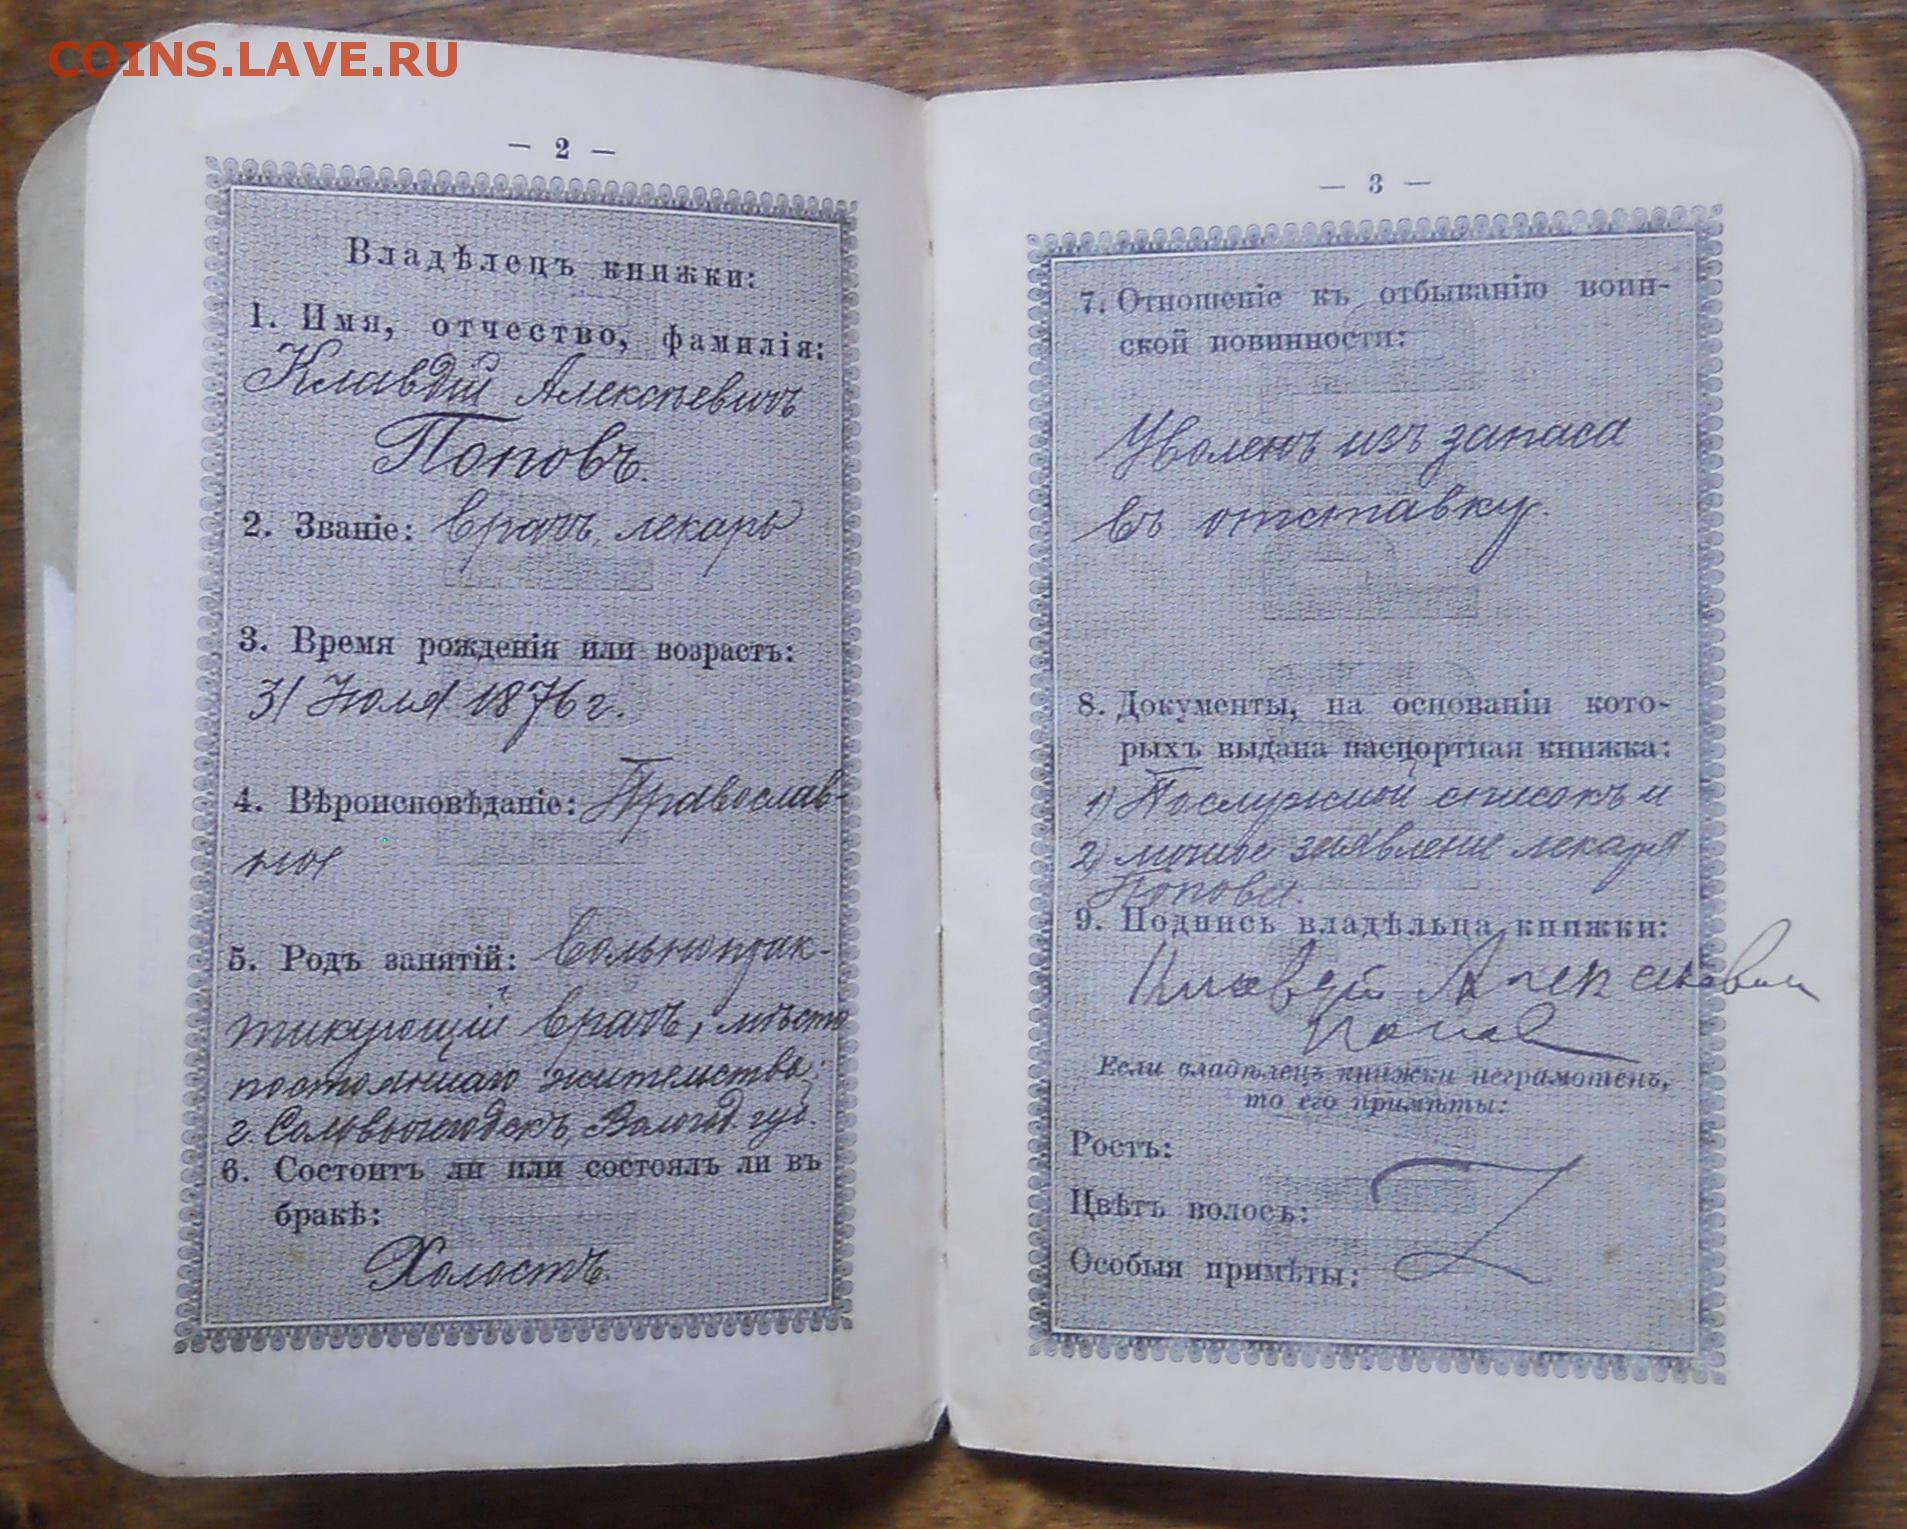 COINS.LAVE.RU
— 2 —
Владѣлецъ книжки:
1. Имя, отчество, фамилія:
Клавдій Алексѣевичъ
Поповъ.
2. Званіе: врачъ, лекарь
3. Время рожденія или возрастъ:
31 Іюля 1876 г.
4. Вѣроисповѣданіе: Православ-
ное
5. Родъ занятій: Вольнопрак-
тикующій врачъ, мѣсто
постояннаго жительства:
г. Сольвычегодскъ, Вологод. губ.
6. Состоитъ ли или состоялъ ли въ
бракѣ:
Холостъ.
— 3 —
7. Отношеніе къ отбыванію воин-
ской повинности:
Уволенъ изъ запаса
въ отставку.
8. Документы, на основаніи кото-
рыхъ выдана паспортная книжка:
1) Послужной списокъ и
2) личное заявленіе лекаря
Попова.
9. Подпись владѣльца книжки:
Клавдій Алексѣевич
Попов
Если владѣлецъ книжки неграмотенъ,
то его примѣты:
Ростъ:
Цвѣтъ волосъ:
Особыя примѣты: